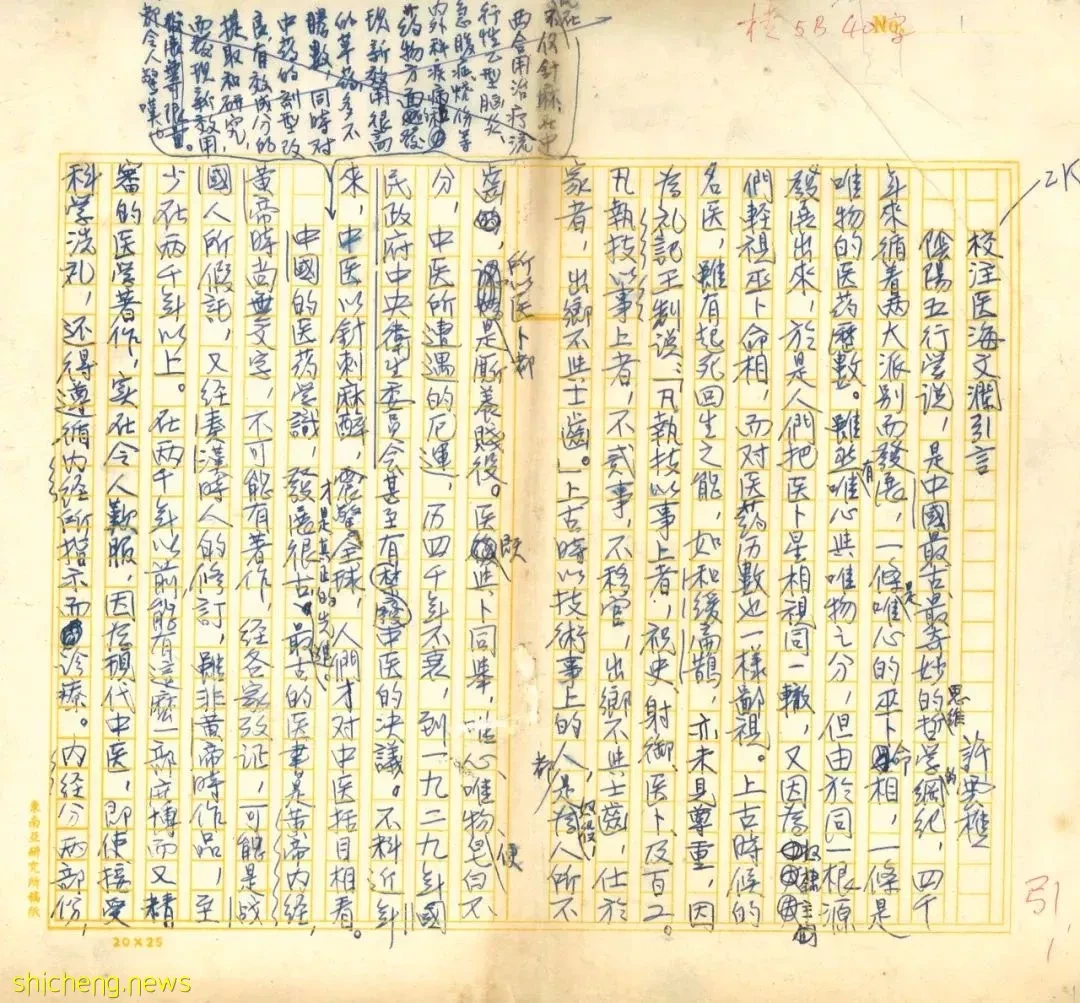 校注医海文瀾引言
許雲樵
陰陽五行学説，是中國最古最奇妙的哲学思维的綱紀，四千
年來循着两大派别而發展，一條是唯心的巫卜命相，一條是
唯物的医药歷數。雖然有唯心與唯物之分，但由於同一根源
發展出來，於是人們把医卜星相視同一轍，又因為
們輕視巫卜命相，而对医药历數也一樣鄙視。上古時候的
名医，雖有起死回生之能，如和緩扁鵲，亦未見尊重，因
為礼記王制説：「凡執技以事上者，祝史、射御、医卜、及百工。
凡執技以事上者，不贰事，不移官，出鄉不與士齒，仕於
家者，出鄉不與士齒。」上古時以技術事上的人，都是奴役，人所不
齒的，所以医卜都是厮養賤役。医既與卜同举，唯心唯物便皂白不
分，中医所遭遇的厄運，历四千年不衰，到一九二九年國
民政府中央衛生委員会甚至有廢中医的决議。不料近年
來，中医以針刺麻醉，震驚全球，人們才对中医括目相看。
中國的医药学識，發展很古，才是真正的先進。最古的医書是黄帝内经，
黄帝時尚無文字，不可能有著作，经各家攷证，可能是战
國人所假託，又经秦漢時人的修訂，雖非黄帝時作品，至
少在两千年以上。在两千年以前能有這麽一部广博而又精
審的医学著作，实在令人歎服，因為現代中医，即使接受
科学洗礼，还得遵循内经所指示而诊療。内经分两部份，
不仅針麻在中
西合用治疗流
行性乙型腦炎、
急腹症
内外科疾病
药物方面
现新效用很高
的草药多不
勝數，同時对
中药的剂型改
良，有效成分的
提取和研究，
而發现新效用
都令人驚嘆
檢5B 40字
No.
2K
引1
東南亚研究所稿纸
20×25
shicheng.news